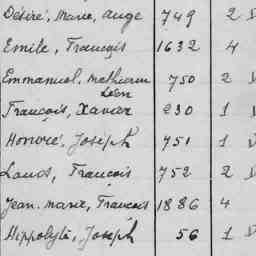 Désiré, Marie, Ange 749 2 D
Emile, François 1632 4
Emmanuel. Mathurin 750 2 D
Léon
François, Xavier 230 1 D
Honoré, Joseph 751 1 D
Louis, François 752 2 D
Jean. Marie, François 1886 4
Hippolyte, Joseph 56 1 D